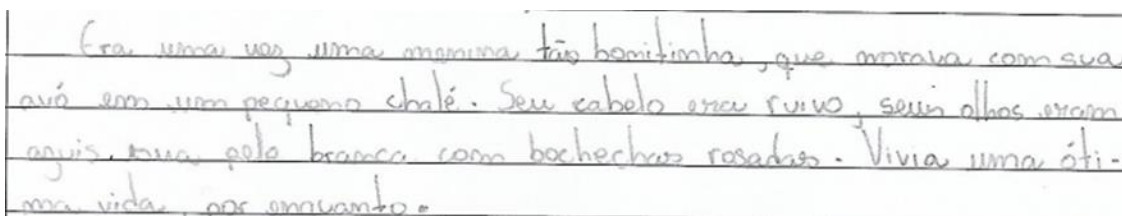 Era uma vez uma menina tão bonitinha, que morava com sua
avó em um pequeno chalé. Seu cabelo era ruivo, seus olhos eram
azuis, sua pele branca com bochechas rosadas. Vivia uma óti-
ma vida, por enquanto.